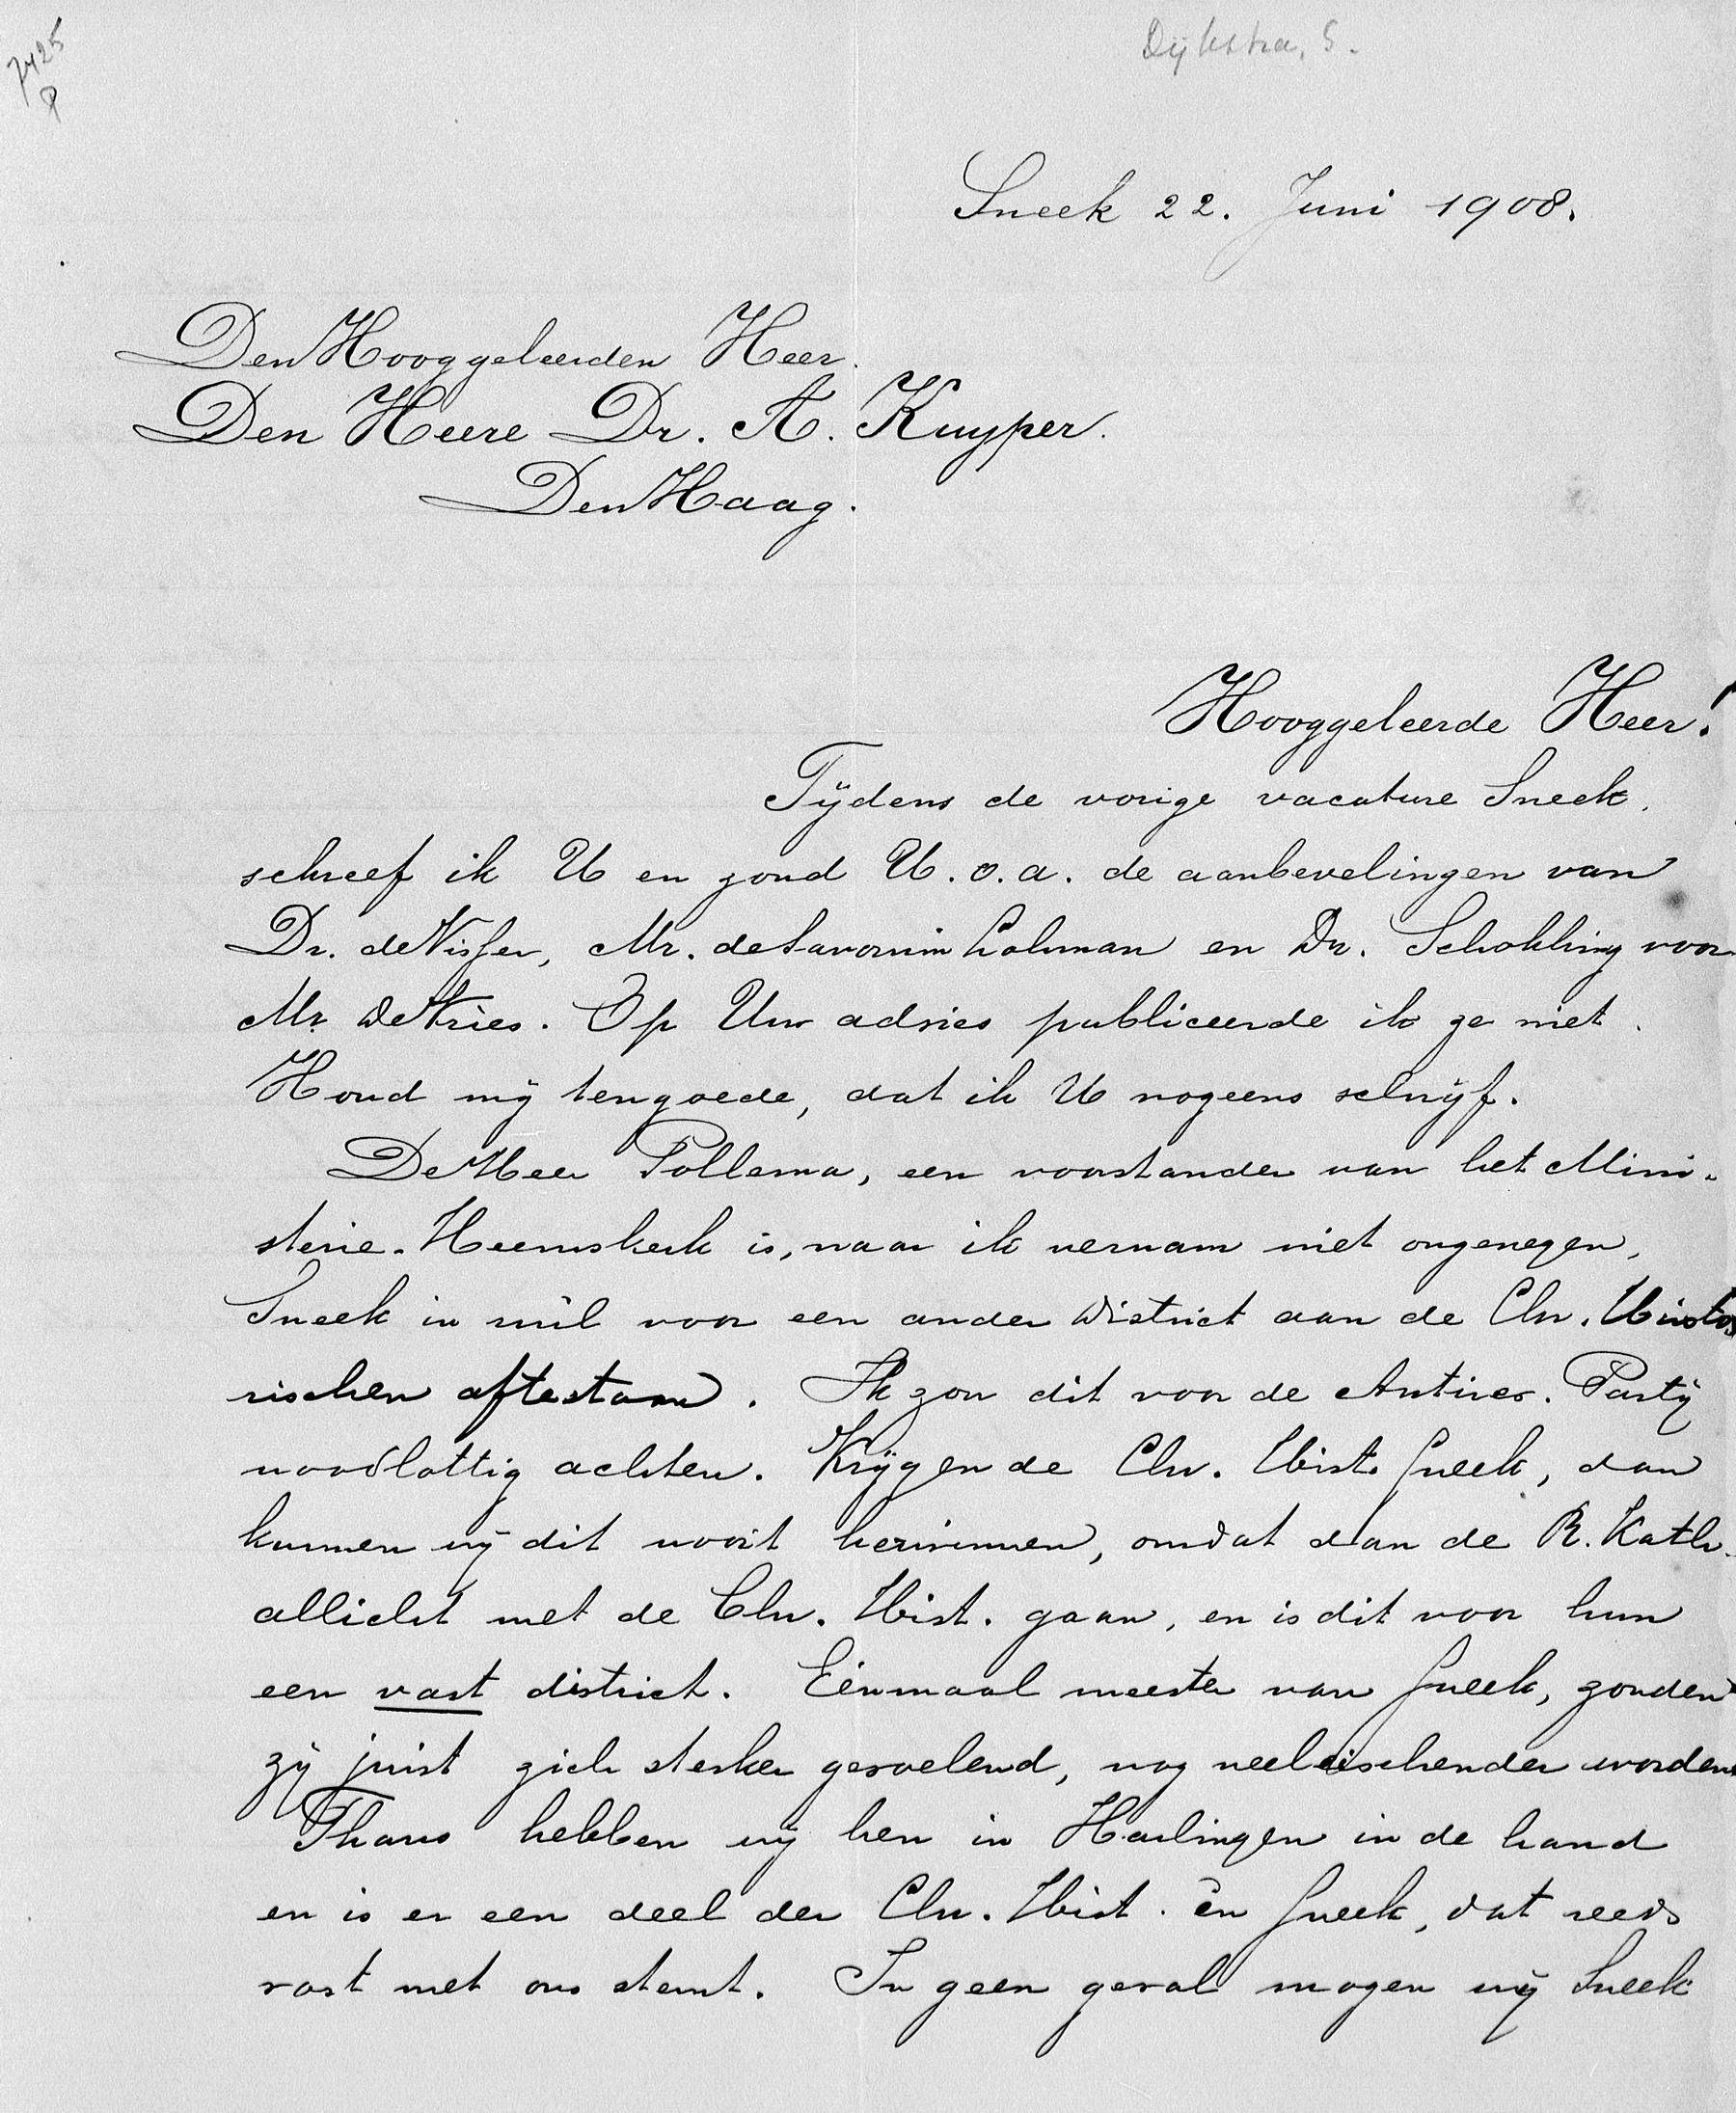 7425
Dijkstra, S.
Sneek 22. Juni 1908.
Den Hooggeleerden Heer.
Den Heere Dr. A. Kuyper.
Den Haag.
Hooggeleerde Heer!
Tijdens de vorige vacature Sneek,
schreef ik U en zond U. o.a. de aanbevelingen van
Dr. de Visser, Mr. de Savornin Lohman en Dr. Schokking voor
Mr. de Vries. Op Uw advies publiceerde ik ze niet.
Houd mij tengoede, dat ik U nogeens schrijf.
De Heer Pollema, een voorstander van het Mini-
sterie-Heemskerk is, naar ik vernam niet ongenegen,
Sneek in ruil voor een ander district aan de Chr. Histo
rischen aftestaan. Ik zou dit voor de Antirev. Partij
noodlottig achten. Krijgen de Chr. Hist. Sneek, dan
kunnen wij dit nooit herwinnen, omdat dan de R. Kath.
allicht met de Chr. Hist. gaan, en is dit voor hun
een vast district. Eénmaal meester van Sneek, zouden
zij juist zich sterker gevoelend, nog veeleischender worden
Thans hebben wij hen in Harlingen in de hand
en is er een deel der Chr. Hist. in Sneek, dat reeds
vast met ons stemt. In geen geval mogen wij Sneek